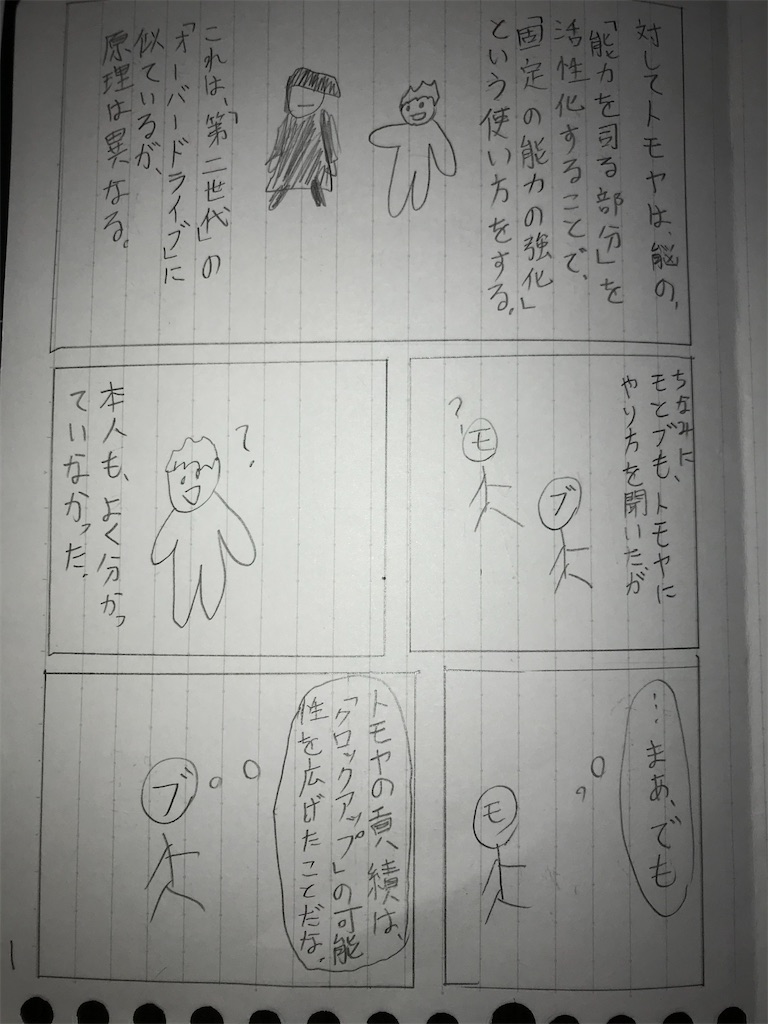 対してトモヤは、脳の、
「能力を司る部分」を
活性化することで、
「固定の能力の強化」
という使い方をする。
これは、「第二世代」の
「オーバードライブ」に
似ているが、
原理は異なる。
ちなみに
モとブも、トモヤに
やり方を聞いたが
?
モ
ブ
?
本人も、よく分かっ
ていなかった。
…まあ、でも
モ
トモヤの貢績は、
「クロックアップ」の可能
性を広げたことだな。
ブ
1